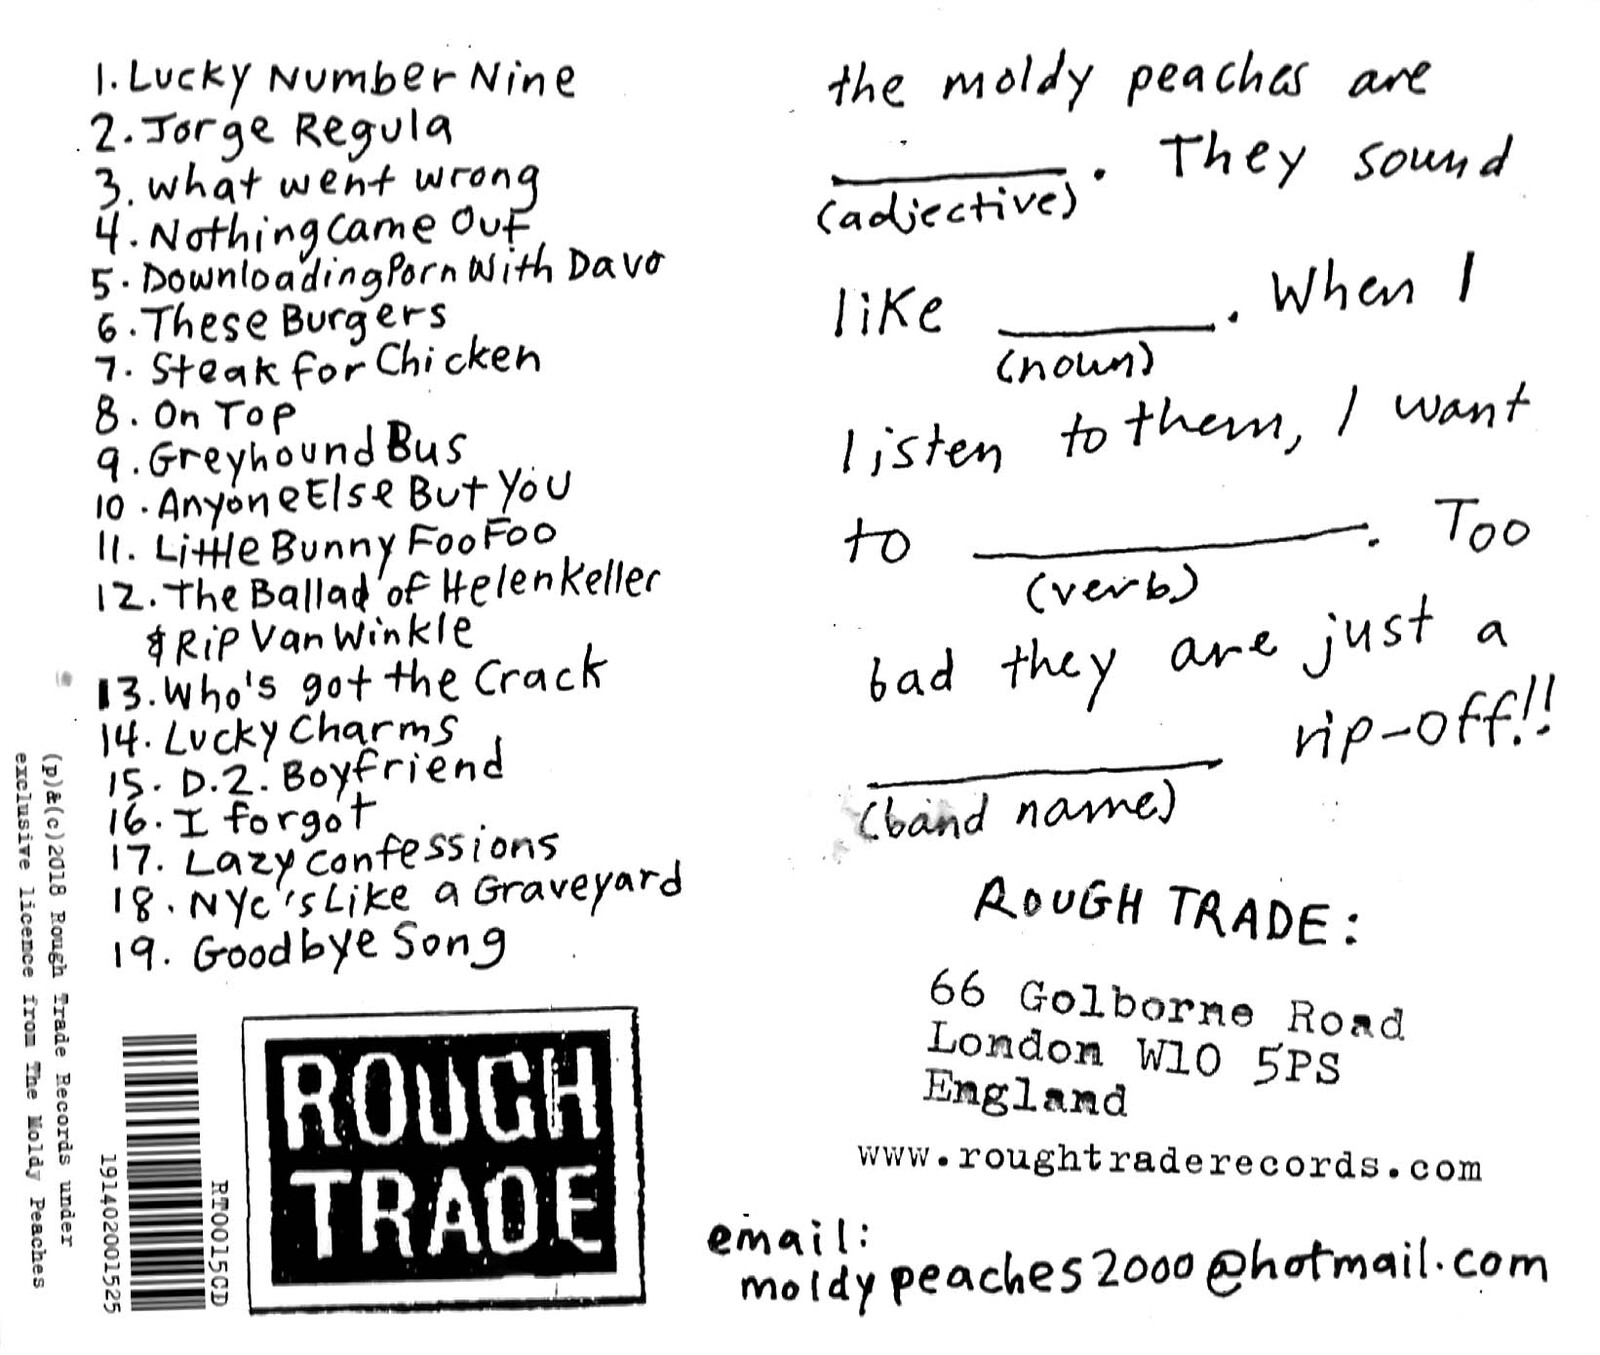 1. Lucky Number Nine
2. Jorge Regula
3. what went wrong
4. Nothing Came Out
5. Downloading Porn With Davo
6. These Burgers
7. Steak for Chicken
8. On Top
9. Greyhound Bus
10. Anyone Else But You
11. Little Bunny Foo Foo
12. The Ballad of Helen Keller
& Rip Van Winkle
13. Who's got the Crack
14. Lucky Charms
15. D.2. Boyfriend
16. I forgot
17. Lazy Confessions
18. NYC's Like a Graveyard
19. Goodbye Song
(p)&(c)2018 Rough Trade Records under
exclusive licence from The Moldy Peaches
191402001525
RT0015CD
ROUGH
TRADE
the moldy peaches are
________. They sound
(adjective)
like ________. When I
(noun)
listen to them, I want
to ________. Too
(verb)
bad they are just a
________ rip-off!!
(band name)
ROUGH TRADE:
66 Golborne Road
London W10 5PS
England
www.roughtraderecords.com
email:
moldypeaches2000@hotmail.com